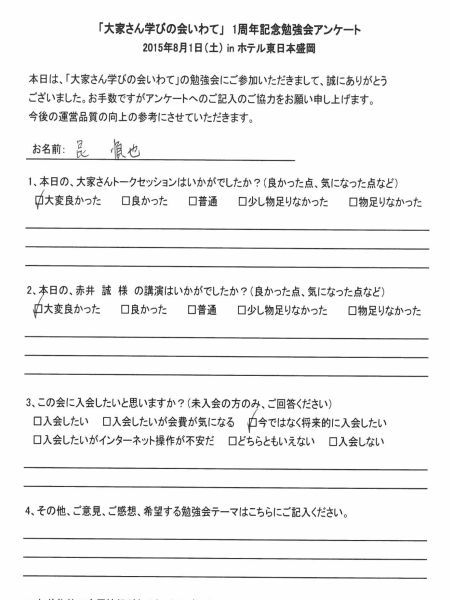 「大家さん学びの会いわて」 1周年記念勉強会アンケート
2015年8月1日(土) in ホテル東日本盛岡
本日は、「大家さん学びの会いわて」の勉強会にご参加いただきまして、誠にありがとう
ございました。お手数ですがアンケートへのご記入のご協力をお願い申し上げます。
今後の運営品質の向上の参考にさせていただきます。
お名前: 昆 也
1、本日の、大家さんトークセッションはいかがでしたか?(良かった点、気になった点など)
☑大変良かった □良かった □普通 □少し物足りなかった □物足りなかった
2、本日の、赤井 誠 様 の講演はいかがでしたか?(良かった点、気になった点など)
☑大変良かった □良かった □普通 □少し物足りなかった □物足りなかった
3、この会に入会したいと思いますか?(未入会の方のみ、ご回答ください)
□入会したい □入会したいが会費が気になる ☑今ではなく将来的に入会したい
□入会したいがインターネット操作が不安だ □どちらともいえない □入会しない
4、その他、ご意見、ご感想、希望する勉強会テーマはこちらにご記入ください。